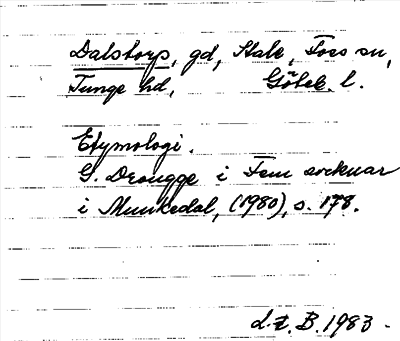 Dalstorp, gd, Stale, Foss sn,
Tunge hd, Göteb. l.
Etymologi.
G. Drougge i Fem socknar
i Munkedal, (1980), s. 178.
d. Z. B. 1983.